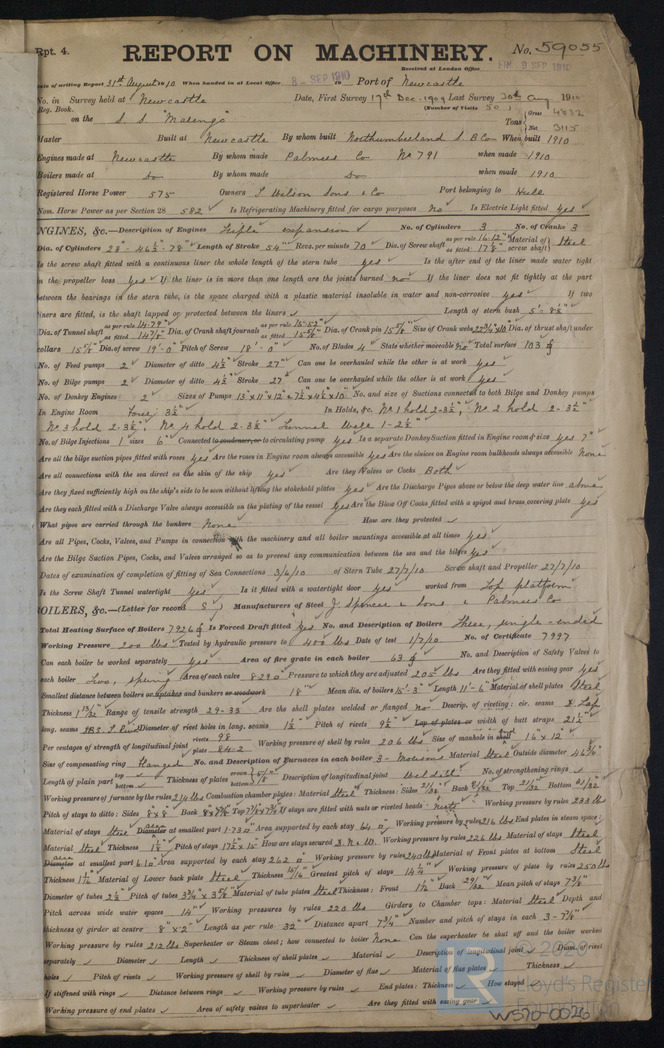 Rpt. 4.
REPORT ON MACHINERY. No. 59055
Received at London Office FRI. 9 SEP 1910
Date of writing Report 31st August 1910 When handed in at Local Office 8 - SEP 1910 Port of Newcastle
No. in Survey held at Newcastle Date, First Survey 17th Dec. 1909 Last Survey 30th Aug 1910
Reg. Book. (Number of Visits 50)
on the S S "Malengo" Tons Gross 4832 Net 3115
Master Built at Newcastle By whom built Northumberland S B Co When built 1910
Engines made at Newcastle By whom made Palmers Co No 791 when made 1910
Boilers made at Do By whom made Do when made 1910
Registered Horse Power 575 Owners T Wilson Sons & Co Port belonging to Hull
Nom. Horse Power as per Section 28 582 Is Refrigerating Machinery fitted for cargo purposes No Is Electric Light fitted yes
ENGINES, &c.—Description of Engines Triple expansion No. of Cylinders 3 No. of Cranks 3
Dia. of Cylinders 28" - 46½" - 78" Length of Stroke 54" Revs. per minute 70 Dia. of Screw shaft as per rule 16.12" as fitted 17⅞" Material of screw shaft Steel
Is the screw shaft fitted with a continuous liner the whole length of the stern tube yes Is the after end of the liner made water tight
in the propeller boss yes If the liner is in more than one length are the joints burned no If the liner does not fit tightly at the part
between the bearings in the stern tube, is the space charged with a plastic material insoluble in water and non-corrosive yes If two
liners are fitted, is the shaft lapped or protected between the liners Length of stern bush 5'-8½"
Dia. of Tunnel shaft as per rule 14.79" as fitted 14⅞" Dia. of Crank shaft journals as per rule 15.52" as fitted 15⅝" Dia. of Crank pin 15⅝" Size of Crank webs Dia. of thrust shaft under
collars 15⅝" Dia. of screw 19'-0" Pitch of Screw 18'-0" No. of Blades 4 State whether moveable no Total surface 103
No. of Feed pumps 2 Diameter of ditto 4½" Stroke 27" Can one be overhauled while the other is at work yes
No. of Bilge pumps 2 Diameter of ditto 4½" Stroke 27" Can one be overhauled while the other is at work yes
No. of Donkey Engines 2 Sizes of Pumps No. and size of Suctions connected to both Bilge and Donkey pumps
In Engine Room Four; 3½" In Holds, &c. No 1 hold 2-3½"; No 2 hold 2-3½"
No 3 hold 2-3½" No 4 hold 2-3½" Tunnel Well 1-2½"
No. of Bilge Injections 1 sizes 6" Connected to condenser, or to circulating pump yes Is a separate Donkey Suction fitted in Engine room & size yes 7"
Are all the bilge suction pipes fitted with roses yes Are the roses in Engine room always accessible yes Are the sluices on Engine room bulkheads always accessible none
Are all connections with the sea direct on the skin of the ship yes Are they Valves or Cocks Both
Are they fixed sufficiently high on the ship's side to be seen without lifting the stokehold plates yes Are the Discharge Pipes above or below the deep water line above
Are they each fitted with a Discharge Valve always accessible on the plating of the vessel yes Are the Blow Off Cocks fitted with a spigot and brass covering plate yes
What pipes are carried through the bunkers None How are they protected
Are all Pipes, Cocks, Valves, and Pumps in connection with the machinery and all boiler mountings accessible at all times yes
Are the Bilge Suction Pipes, Cocks, and Valves arranged so as to prevent any communication between the sea and the bilges yes
Dates of examination of completion of fitting of Sea Connections 3/6/10 of Stern Tube 27/7/10 Screw shaft and Propeller 27/7/10
Is the Screw Shaft Tunnel watertight yes Is it fitted with a watertight door yes worked from Top platform
BOILERS, &c.—(Letter for record S) Manufacturers of Steel J. Spencer & Sons & Palmers Co
Total Heating Surface of Boilers 7926 Is Forced Draft fitted yes No. and Description of Boilers Three, single-ended
Working Pressure 200 lbs Tested by hydraulic pressure to 400 lbs Date of test 1/7/10 No. of Certificate 7997
Can each boiler be worked separately yes Area of fire grate in each boiler 63 No. and Description of Safety Valves to
each boiler Two, spring Area of each valve 8.290 Pressure to which they are adjusted 205 lbs Are they fitted with easing gear yes
Smallest distance between boilers or uptakes and bunkers or woodwork 18" Mean dia. of boilers 15'-3" Length 11'-6" Material of shell plates Steel
Thickness 1 13/32" Range of tensile strength 29-33 Are the shell plates welded or flanged no Descrip. of riveting: cir. seams D. Lap
long. seams Diameter of rivet holes in long. seams 1½" Pitch of rivets 9½" Lap of plates or width of butt straps 21½"
Per centages of strength of longitudinal joint rivets 98 plate 84.2 Working pressure of shell by rules 206 lbs Size of manhole in shell 16" x 12"
Size of compensating ring Flanged No. and Description of Furnaces in each boiler 3 - Morisons Material Steel Outside diameter 46¾"
Length of plain part top bottom Thickness of plates crown bottom Description of longitudinal joint Welded No. of strengthening rings
Working pressure of furnace by the rules 214 lbs Combustion chamber plates: Material Steel Thickness: Sides 21/32" Back 21/32" Top 21/32" Bottom 21/32"
Pitch of stays to ditto: Sides 8"x8" Back Top If stays are fitted with nuts or riveted heads Nuts Working pressure by rules 233 lbs
Material of stays Steel Diameter at smallest part 1.730 Area supported by each stay 64 Working pressure by rules 216 lbs End plates in steam space:
Material Steel Thickness 1⅛" Pitch of stays 17½ x 15" How are stays secured D. N. & W. Working pressure by rules 226 lbs Material of stays Steel
Diameter at smallest part 6.10 Area supported by each stay 262 Working pressure by rules 240 lbs Material of Front plates at bottom Steel
Thickness Material of Lower back plate Steel Thickness 15/16" Greatest pitch of stays 14¼" Working pressure of plate by rules 250 lbs
Diameter of tubes 2½" Pitch of tubes 3¾" x 3⅝" Material of tube plates Steel Thickness: Front Back Mean pitch of stays
Pitch across wide water spaces 14" Working pressures by rules 220 lbs Girders to Chamber tops: Material Steel Depth and
thickness of girder at centre 8" x 2" Length as per rule 32" Distance apart 7¾" Number and pitch of stays in each 3 - 7⅞"
Working pressure by rules 212 lbs Superheater or Steam chest; how connected to boiler None Can the superheater be shut off and the boiler worked
separately Diameter Length Thickness of shell plates Material Description of longitudinal joint Diam. of rivet
holes Pitch of rivets Working pressure of shell by rules Diameter of flue Material of flue plates Thickness
If stiffened with rings Distance between rings Working pressure by rules End plates: Thickness How stayed
Working pressure of end plates Area of safety valves to superheater Are they fitted with easing gear
© 2020
Lloyd's Register
Foundation
W570-0026